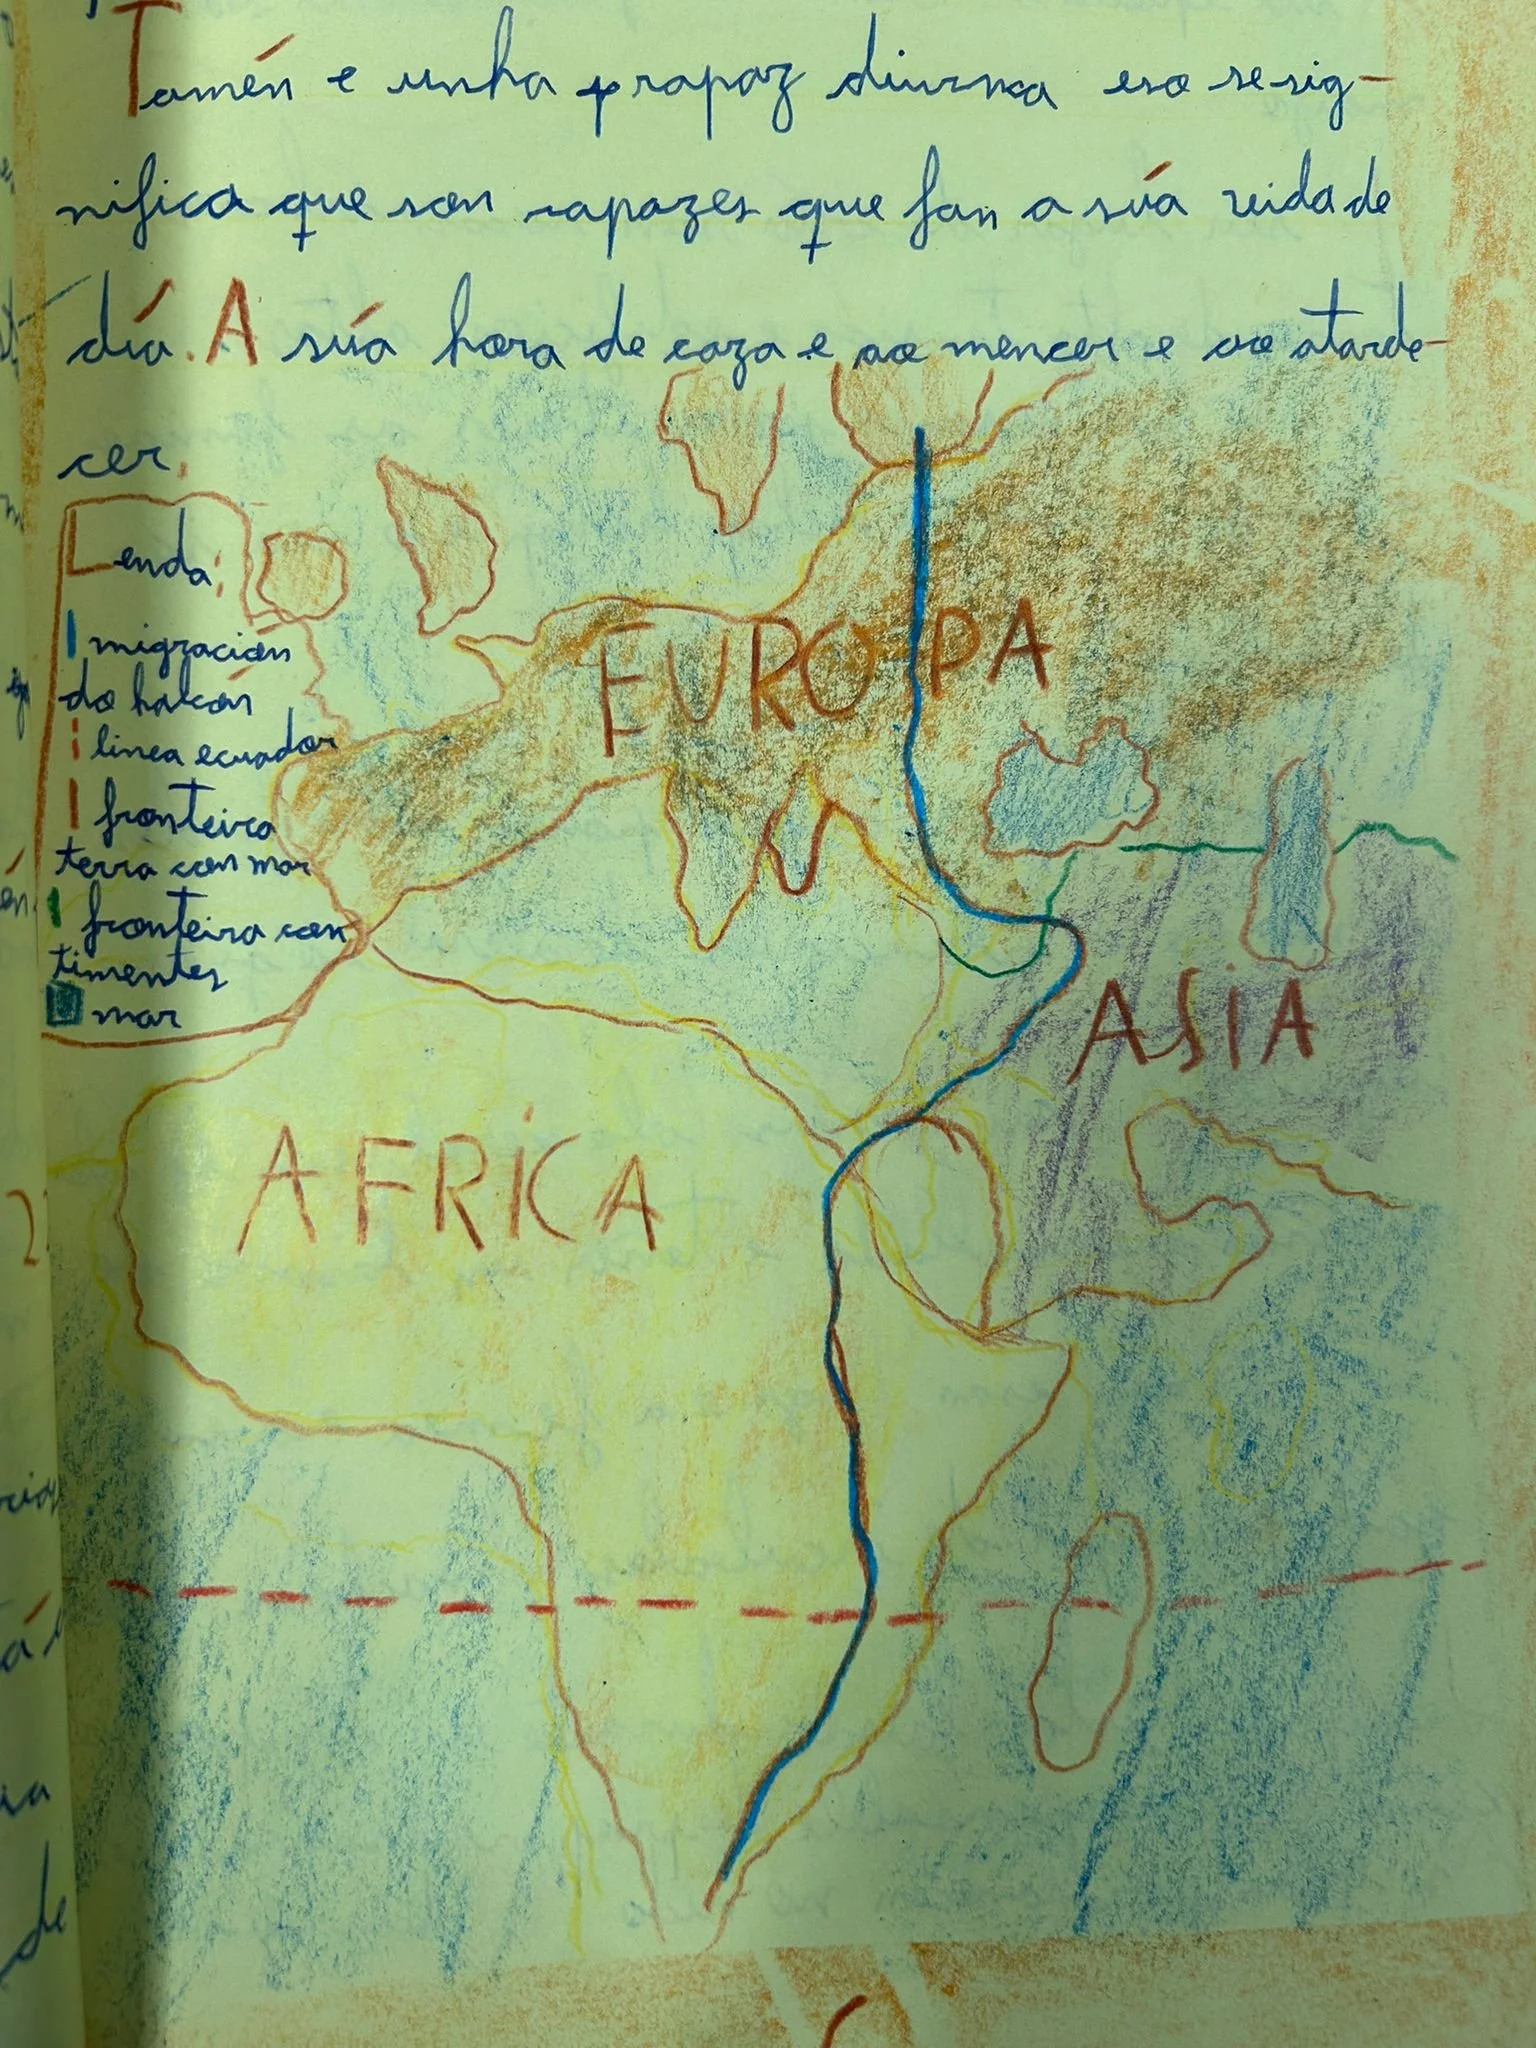 Tamén e unha prapaz diurna eso se sig-
nifica que son rapazes que fan a súa vida de
día. A súa hora de caza e ao mencer e ao atarde-
cer.
Lenda:
migración
do halcón
linea ecuador
fronteira
terra con mar
fronteira con
timentes
mar
EUROPA
ASIA
AFRICA